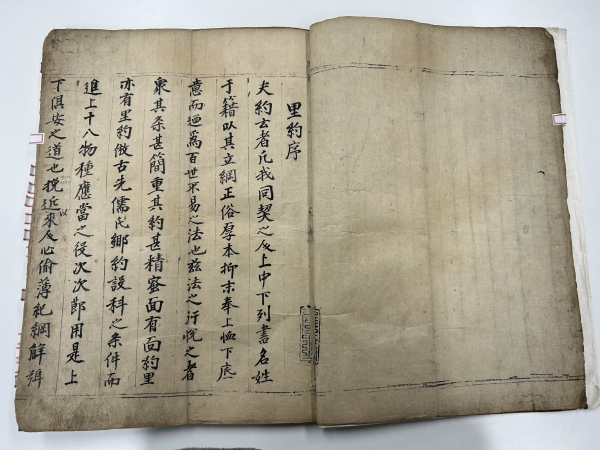 里約序
夫約玄者凡我同契之反上中下列書名姓
于籍以其立綱正俗厚本抑末奉上恤下底
意而廼爲百世不易之法也玆法之行悅之者
衆其条甚簡重其約甚精密面有面約里
亦有里約倣古先儒氏鄉約設科之条件而
進上十八物種應當之役次次節用是上
下俱安之道也挽近以來反心偷薄紀綱解弭